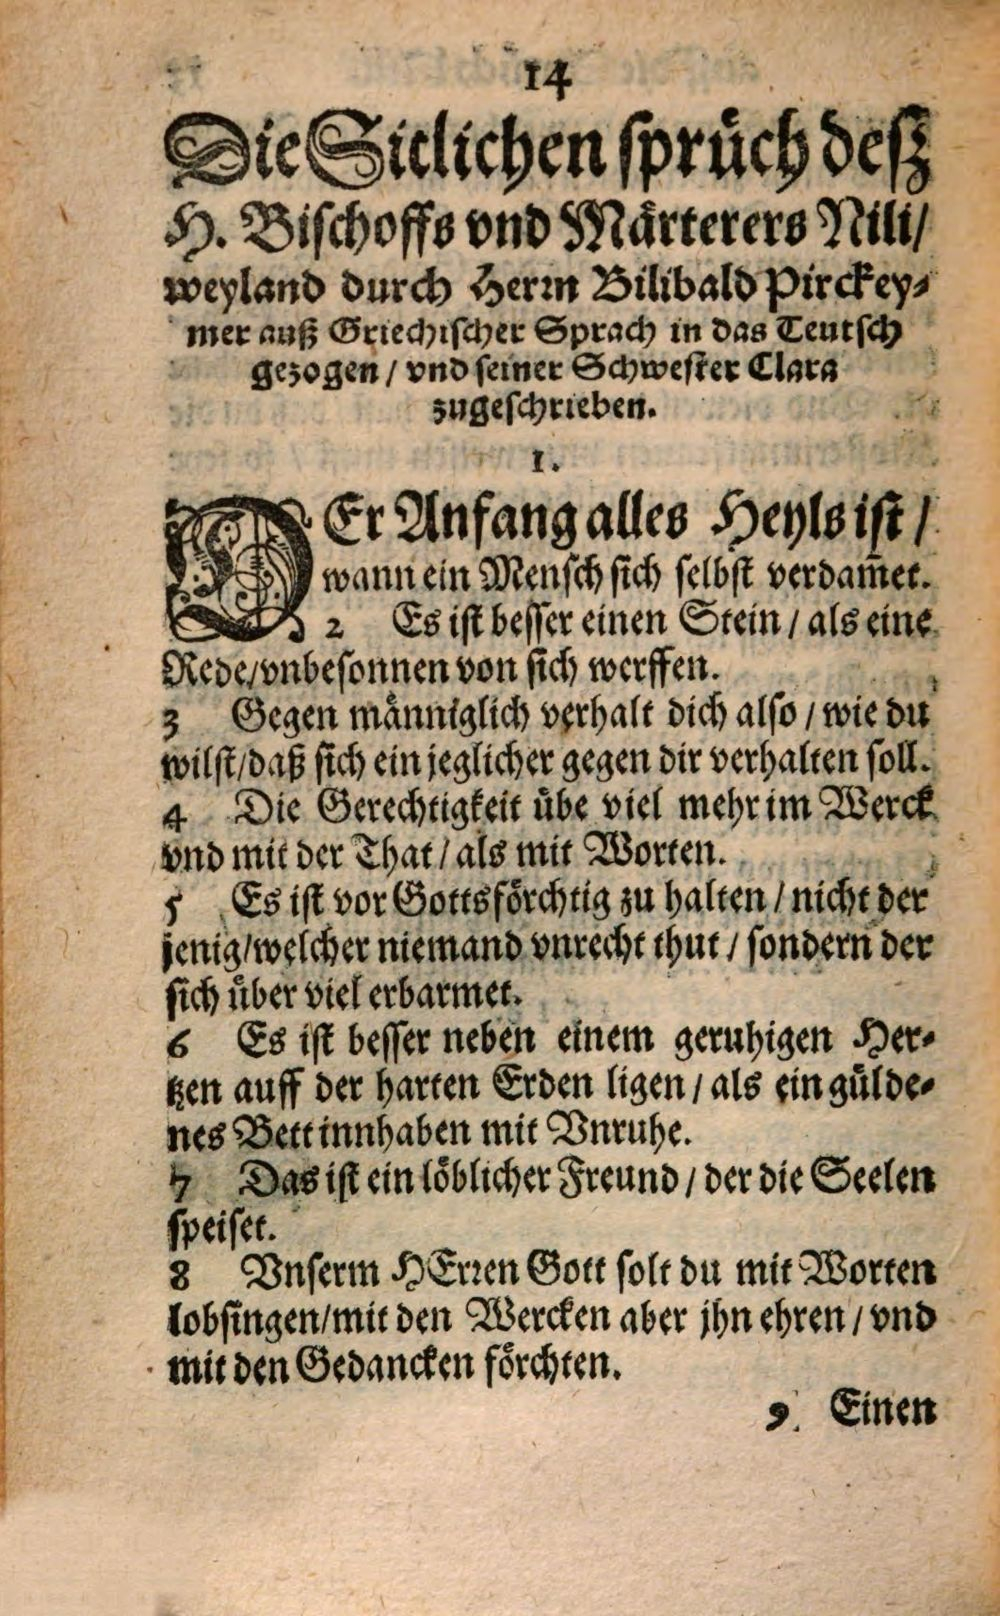 14
Die Sitlichen sprüch desz
H. Bischoffs vnd Märterers Nili/
weyland durch Herrn Bilibald Pirckey-
mer auß Griechischer Sprach in das Teutsch
gezogen / vnd seiner Schwester Clara
zugeschrieben.
1.
DEr Anfang alles Heyls ist /
wann ein Mensch sich selbst verdam̄et.
2 Es ist besser einen Stein / als eine
Rede/vnbesonnen von sich werffen.
3 Gegen männiglich verhalt dich also / wie du
wilst/daß sich ein jeglicher gegen dir verhalten soll.
4 Die Gerechtigkeit übe viel mehr im Werck
vnd mit der That / als mit Worten.
5 Es ist vor Gottsförchtig zu halten / nicht der
jenig/welcher niemand vnrecht thut / sondern der
sich über viel erbarmet.
6 Es ist besser neben einem geruhigen Her-
tzen auff der harten Erden ligen / als ein gülde-
nes Bett innhaben mit Vnruhe.
7 Das ist ein löblicher Freund / der die Seelen
speiset.
8 Vnserm HErren Gott solt du mit Worten
lobsingen/mit den Wercken aber jhn ehren / vnd
mit den Gedancken förchten.
9. Einen